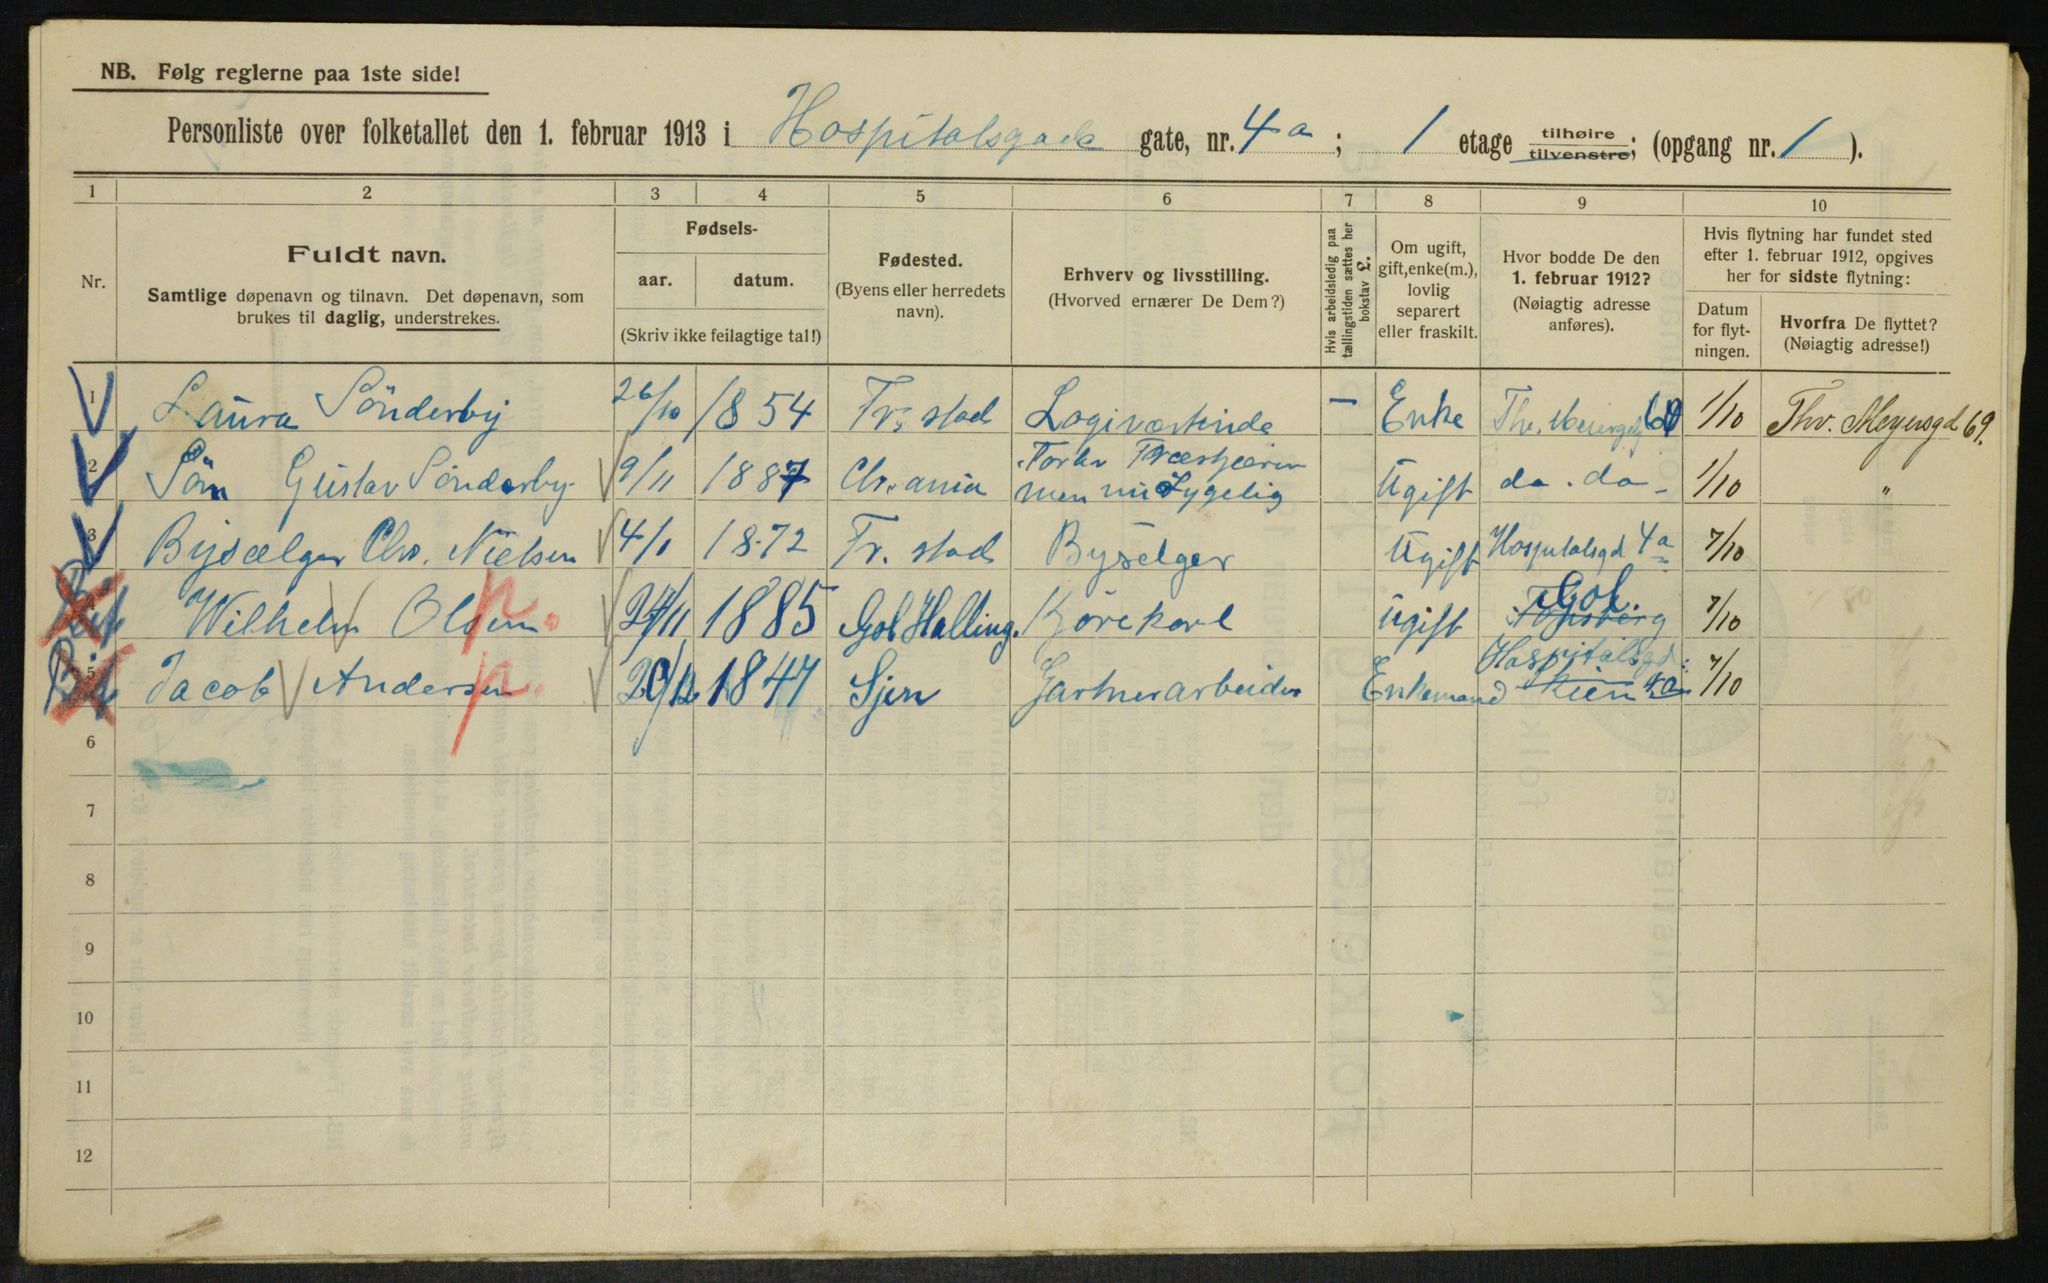 NB. Følg reglerne paa 1ste side!
Personliste over folketallet den 1. februar 1913 i Hospitalsgade gate, nr. 4a; 1 etage tilhøire tilvenstre; (opgang nr. 1).
1 2 3 4 5 6 7 8 9 10
Nr.
Fuldt navn.
Samtlige døpenavn og tilnavn. Det døpenavn, som
brukes til daglig, understrekes.
Fødsels-
aar. datum.
(Skriv ikke feilagtige tal!)
Fødested.
(Byens eller herredets
navn).
Erhverv og livsstilling.
(Hvorved ernærer De Dem?)
Hvis arbeidsledig paa
tællingstiden sættes her
bokstav L.
Om ugift,
gift, enke(m.),
lovlig
separert
eller fraskilt.
Hvor bodde De den
1. februar 1912?
(Nøiagtig adresse
anføres).
Hvis flytning har fundet sted
efter 1. februar 1912, opgives
her for sidste flytning:
Datum
for flyt-
ningen.
Hvorfra De flyttet?
(Nøiagtig adresse!)
1 Laura Sönderby 26/10 1854 Fr. stad Logivæstinde — Enke 1/10 Thv. Meyersgd 69.
2 Sön Gustav Sönderby 9/11 1887 Chr.ania men nu Ugift do. do 1/10 "
3 Bysælger Chr. Nielsen 4/1 1872 Fr. stad Byselger Ugift Hospitalsgd 4a 7/10
4 Wilhelm Olsen 24/11 1885 Gol Halling. Kjörekarl Ugift Tønsberg Gol. 7/10
5 Jacob Andersen 20/12 1847 Sjen Gartnerarbeider Enkemand Skien Hospitalsgd: 4a 7/10
6
7
8
9
10
11
12